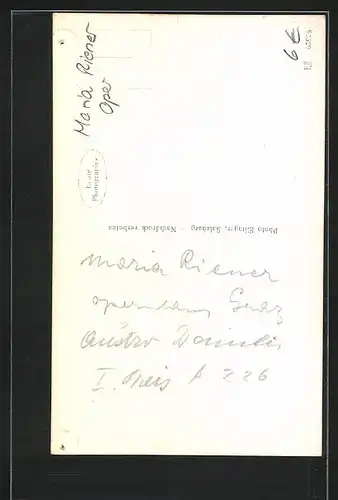 Maria Riener
Oper
6 €
Echte
Photographie
Photo Ellinger, Salzburg - Nachdruck verboten
Maria Riener
opernhaus Graz
I. Preis A 226